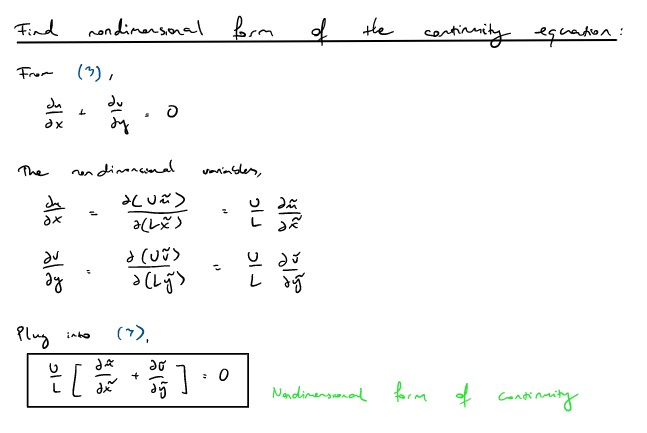 Find nondimensional form of the continuity equation:
From (3),
∂u/∂x + ∂v/∂y = 0
The nondimensional variables,
∂u/∂x = ∂(Uũ)/∂(Lx̃) = U/L ∂ũ/∂x̃
∂v/∂y = ∂(Uṽ)/∂(Lỹ) = U/L ∂ṽ/∂ỹ
Plug into (3),
U/L [ ∂ũ/∂x̃ + ∂ṽ/∂ỹ ] = 0
Nondimensional form of continuity